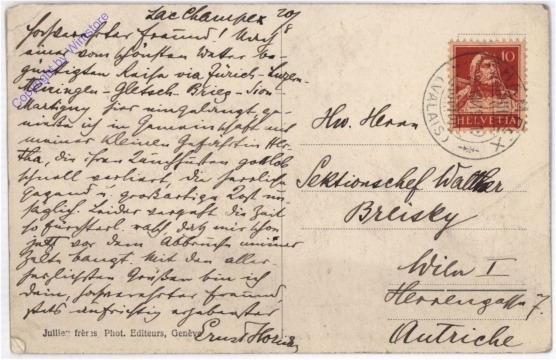 Lac Champex 20/8
Hochverehrter Freund! Nach
einer vom schönsten Wetter be-
günstigten Reise via Zürich-Luzern-
Meiringen-Gletsch-Brieg-Sion-
Martigny hier eingelangt ge-
nieße ich in Gemeinschaft mit
meiner kleinen Gefährtin
die ihren gottlob
schnell verliert, die herrliche
Gegend u. großartige un-
säglich. Leider vergeht die Zeit
so fürchterl. rasch, daß mir schon
jetzt vor dem Abbruche meiner
Zelte bangt. Mit den aller-
herzlichsten Grüßen bin ich
Dein, hochverehrter Freund,
stets aufrichtig ergebenster
Ernst
Hw. Herrn
Sektionschef Walther
Breisky
Wien I
Herrengasse 7.
Autriche
10
HELVETIA
(VALAIS)
Jullien frères, Phot. Editeurs, Genève
Copyright by Winstore